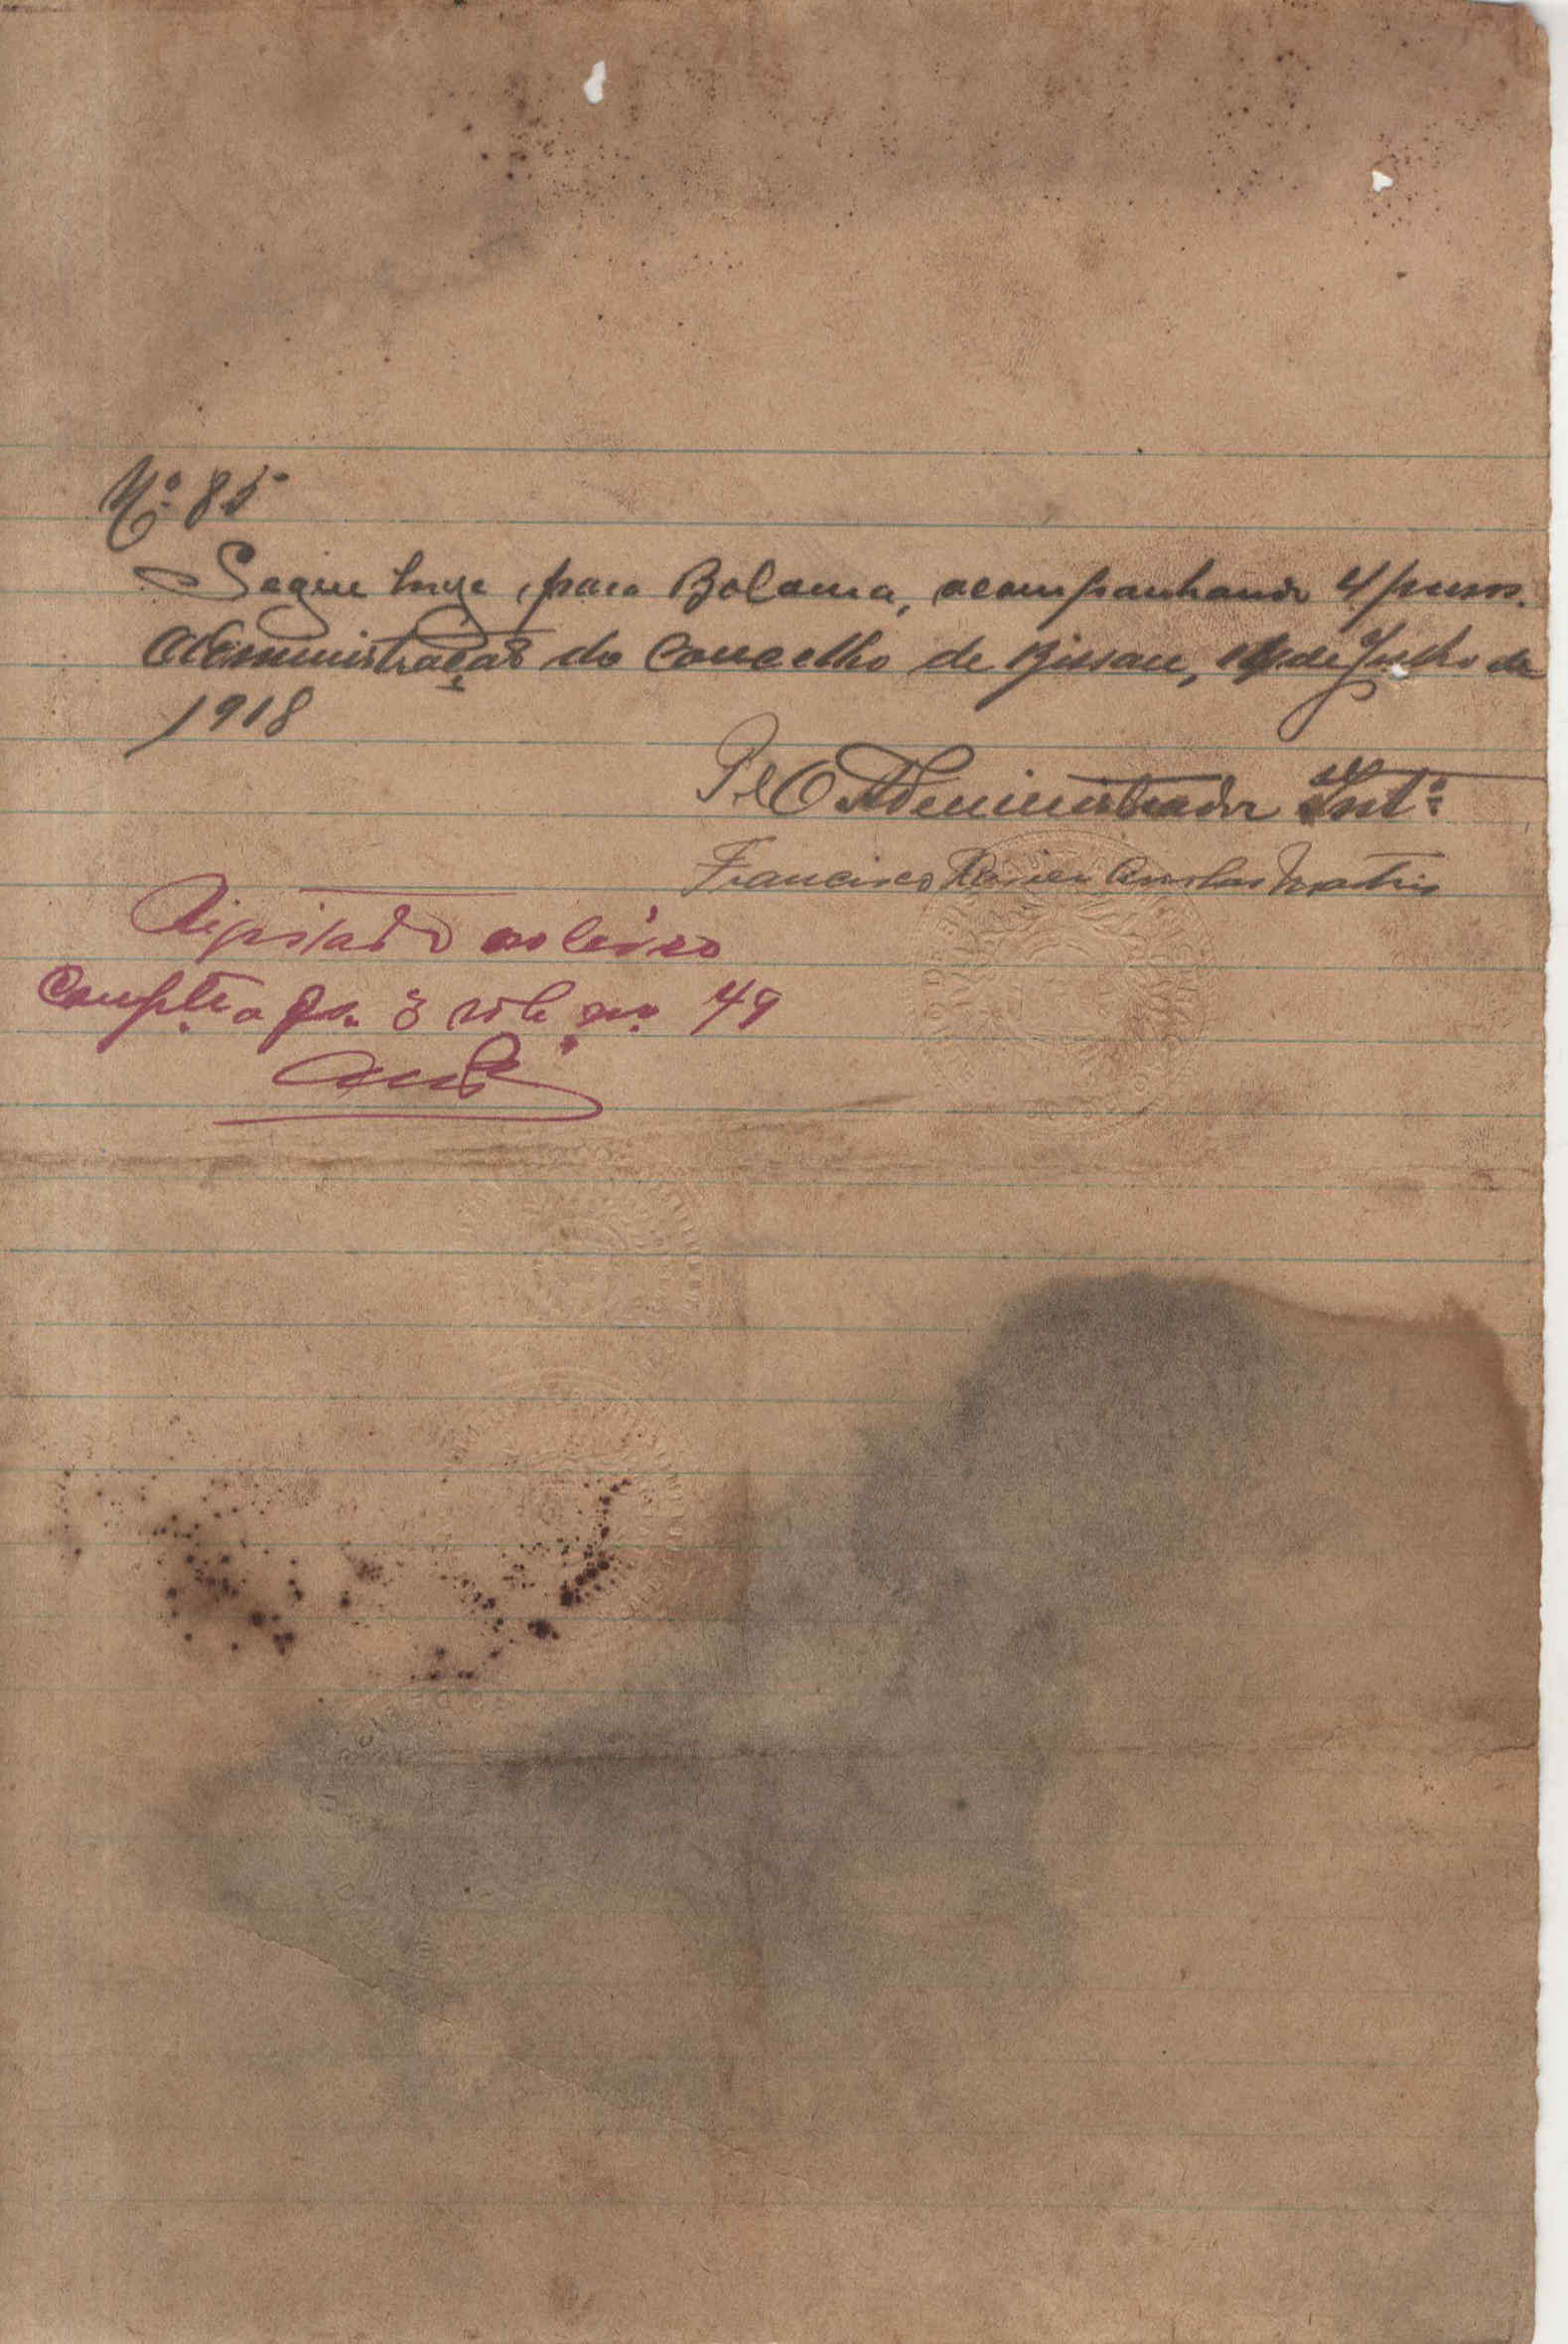 Nº 85
Segue hoje, para Bolama, acompanhando 4 presos.
Administração do Concelho de Bissau, de Julho de
1918
Pel O Administrador Intº
Francisco Xavier
Registado no livro
Compte a fs. 3 sob nº 49